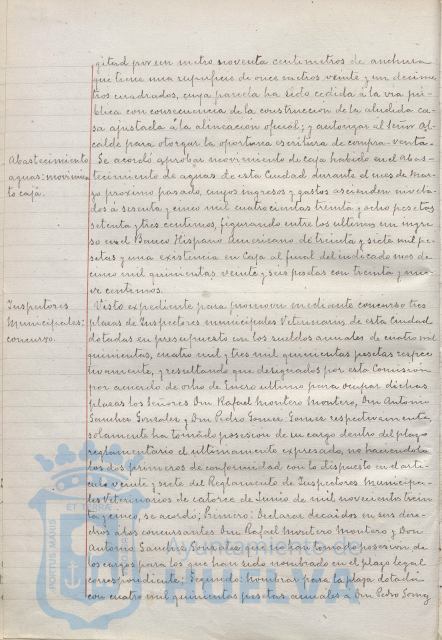 gitud por un metro noventa centimetros de anchura
que tiene una superficie de once metros veinte y un decime
tros cuadrados, cuya parcela ha sido cedida á la via pú-
blica con consecuencia de la construcción de la aludida ca-
sa ajustada á la alineación oficial; y autorizar al Señor Al-
calde para otorgar la oportuna escritura de compra-venta.
Abastecimiento
aguas: movimien
to caja.
Se acordó aprobar movimiento de caja habido en el Abas-
tecimiento de aguas de esta Ciudad durante el mes de Mar-
zo próximo pasado, cuyos ingresos y gastos ascienden nivela-
dos á sesenta y cinco mil cuatrocientas treinta y ocho pesetas
setenta y tres centimos, figurando entre los ultimos un ingre-
so en el Banco Hispano Americano de treinta y siete mil pe-
setas y una existencia en Caja al final del indicado mes de
cinco mil quinientas veinte y seis pesetas con treinta y nue-
ve centimos.
Inspectores
Municipales:
concurso.
Visto expediente para promover mediante concurso tres
plazas de Inspectores municipales Veterinarios de esta Ciudad
dotadas en presupuesto con los sueldos anuales de cuatro mil
quinientas, cuatro mil y tres mil quinientas pesetas respec-
tivamente, y resultando que designados por esta Comisión
por acuerdo de ocho de Enero ultimo para ocupar dichas
plazas los Señores Don Rafael Montero Montero, Don Antonio
Sanchez Gonzalez y Don Pedro Gomez Gomez respectivamente,
solamente ha tomado posesión de su cargo dentro del plazo
reglamentario el ultimamente expresado, no haciendolo
los dos primeros de conformidad con lo dispuesto en el arti-
culo veinte y siete del Reglamento de Inspectores Municipa-
les Veterinarios de catorce de Junio de mil novecientos trein
ta y cinco, se acordó; Primero: Declarar decaidos en sus dere-
chos a los concursantes Don Rafael Montero Montero y Don
Antonio Sanchez Gonzalez por no haber tomado posesión de
los cargos para los que han sido nombrados en el plazo legal
correspondiente; Segundo: Nombrar para la plaza dotada
con cuatro mil quinientas pesetas anuales a Don Pedro Gomez
PORTUS MARIS
ET TERRÆ
Ayuntamiento de
HUELVA